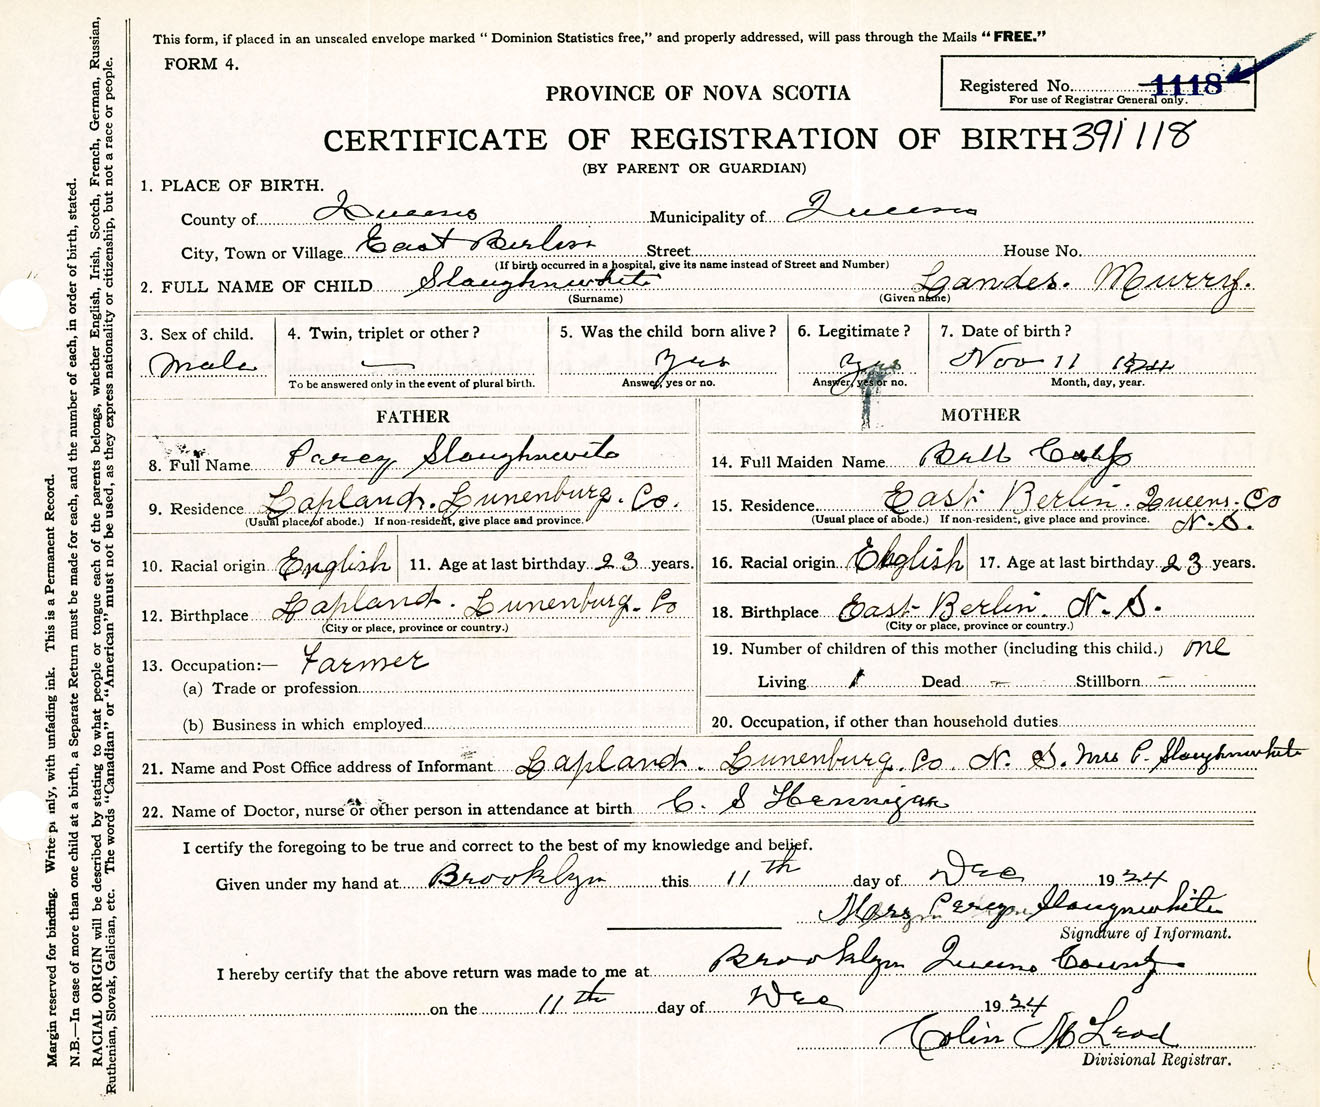 This form, if placed in an unsealed envelope marked "Dominion Statistics free," and properly addressed, will pass through the Mails "FREE."
FORM 4.
Registered No. 1118
For use of Registrar General only.
PROVINCE OF NOVA SCOTIA
CERTIFICATE OF REGISTRATION OF BIRTH 391118
(BY PARENT OR GUARDIAN)
1. PLACE OF BIRTH.
County of Queens Municipality of Queens
City, Town or Village East Berlin Street House No.
(If birth occurred in a hospital, give its name instead of Street and Number)
2. FULL NAME OF CHILD Slaughnwhite Landes. Murry.
(Surname) (Given name)
3. Sex of child. 4. Twin, triplet or other? 5. Was the child born alive? 6. Legitimate? 7. Date of birth?
Male — Yes Yes Nov 11 1924
To be answered only in the event of plural birth. Answer, yes or no. Answer, yes or no. Month, day, year.
FATHER MOTHER
8. Full Name Parcy Slaughnwite
14. Full Maiden Name Bell
9. Residence Lapland. Lunenburg. Co.
(Usual place of abode.) If non-resident, give place and province.
15. Residence East Berlin. Queens. Co N.S.
(Usual place of abode.) If non-resident, give place and province.
10. Racial origin English 11. Age at last birthday 23 years.
16. Racial origin English 17. Age at last birthday 23 years.
12. Birthplace Lapland. Lunenburg. Co
(City or place, province or country.)
18. Birthplace East Berlin. N. S.
(City or place, province or country.)
13. Occupation:— Farmer
(a) Trade or profession
(b) Business in which employed
19. Number of children of this mother (including this child.) one
Living 1 Dead — Stillborn —
20. Occupation, if other than household duties
21. Name and Post Office address of Informant Lapland. Lunenburg. Co. N. S. Mrs P. Slaughnwhite
22. Name of Doctor, nurse or other person in attendance at birth C. S Hennigar
I certify the foregoing to be true and correct to the best of my knowledge and belief.
Given under my hand at Brooklyn this 11th day of Dec 1924
Mrs Percy Slaugnwhite
Signature of Informant.
I hereby certify that the above return was made to me at Brooklyn Queens County
on the 11th day of Dec 1924
Colin McLeod
Divisional Registrar.
Margin reserved for binding. Write plainly, with unfading ink. This is a Permanent Record.
N.B.—In case of more than one child at a birth, a Separate Return must be made for each, and the number of each, in order of birth, stated.
RACIAL ORIGIN will be described by stating to what people or tongue each of the parents belongs, whether English, Irish, Scotch, French, German, Russian,
Ruthenian, Slovak, Galician, etc. The words "Canadian" or "American" must not be used, as they express nationality or citizenship, but not a race or people.